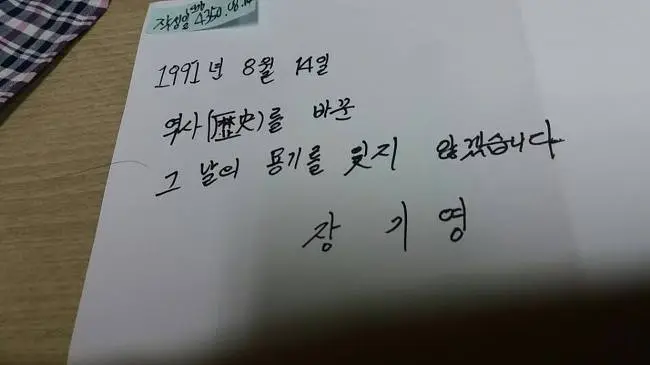 작성일 4350.08.
1991년 8월 14일
역사(歷史)를 바꾼
그 날의 용기를 잊지 않겠습니다
장기영